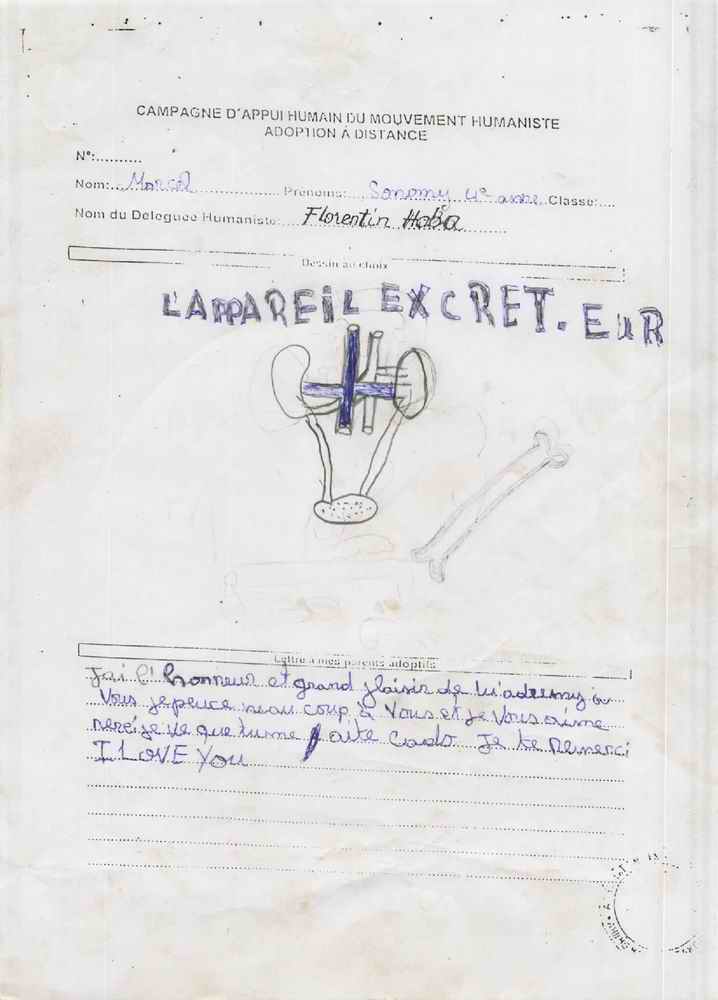 CAMPAGNE D'APPUI HUMAIN DU MOUVEMENT HUMANISTE
ADOPTION À DISTANCE
N°:..........
Nom: Marcel Prénoms: Sonomy 4e Classe:....
Nom du Deleguee Humaniste: Florentin HaBa
Dessin au choix
L'APPAREIL EXCRET. EUR
Lettre a mes parents adoptifs
J'ai l'honneur et grand plaisir de à
Vous je peuce beau coup à Vous et je Vous aime
je ve que tume faite Cado Je te Remerci
I LOVE YOU